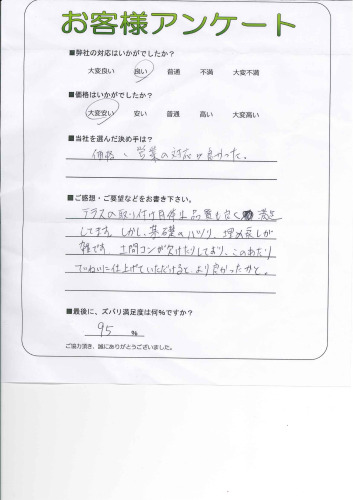 お客様アンケート
■弊社の対応はいかがでしたか?
大変良い 良い 普通 不満 大変不満
■価格はいかがでしたか?
大変安い 安い 普通 高い 大変高い
■当社を選んだ決め手は?
価格、営業の対応が良かった。
■ご感想・ご要望などをお書き下さい。
テラスの取り付け自体は品質も良く 満足
してます。しかし、基礎のハツリ、埋め戻しが
雑です。土間コンが欠けたりしており、このあたり
ていねいに仕上げていただけると、より良かったかと。
■最後に、ズバリ満足度は何%ですか?
95 %
ご協力頂き、誠にありがとうございました。